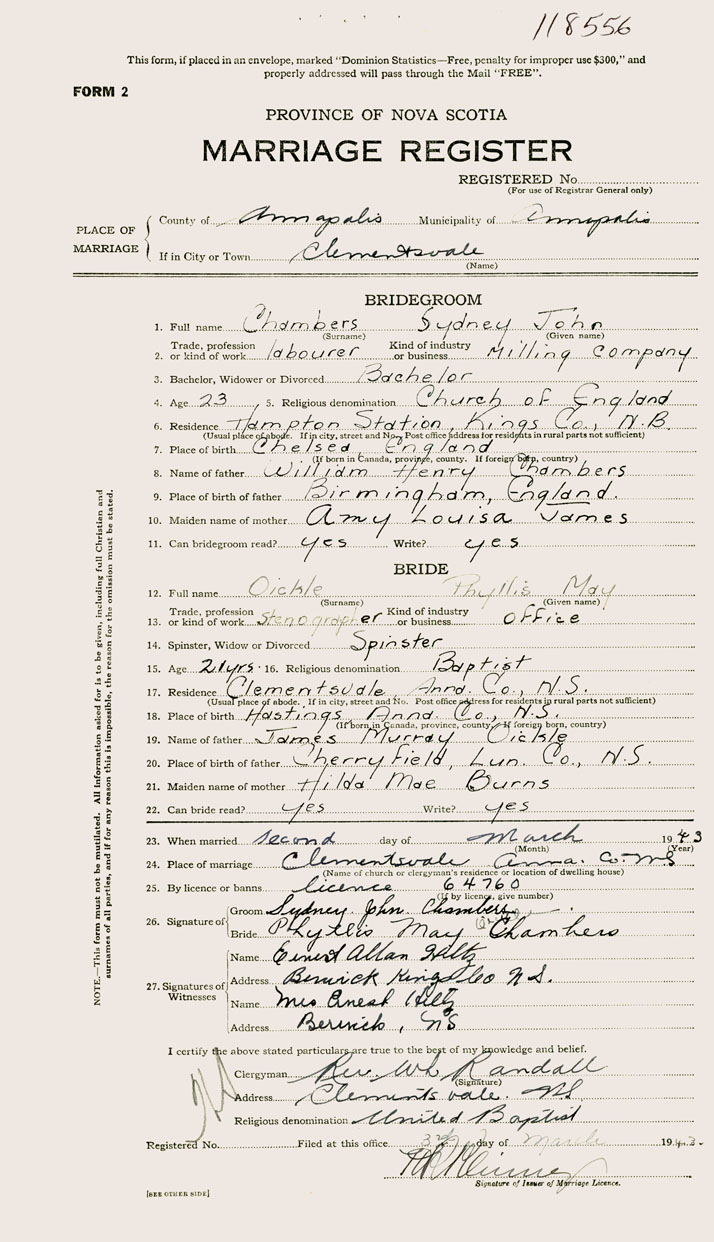 118556
This form, if placed in an envelope, marked "Dominion Statistics—Free, penalty for improper use $300," and
properly addressed will pass through the Mail "FREE".
FORM 2
PROVINCE OF NOVA SCOTIA
MARRIAGE REGISTER
REGISTERED No.
(For use of Registrar General only)
PLACE OF MARRIAGE
County of Annapolis Municipality of Annapolis
If in City or Town Clementsvale
(Name)
BRIDEGROOM
1. Full name Chambers Sydney John
(Surname) (Given name)
2. Trade, profession or kind of work labourer Kind of industry or business Milling Company
3. Bachelor, Widower or Divorced Bachelor
4. Age 23 5. Religious denomination Church of England
6. Residence Hampton Station, Kings Co., N.B.
(Usual place of abode. If in city, street and No. Post office address for residents in rural parts not sufficient)
7. Place of birth Chelsea England
(If born in Canada, province, county. If foreign born, country)
8. Name of father William Henry Chambers
9. Place of birth of father Birmingham, England.
10. Maiden name of mother Amy Louisa James
11. Can bridegroom read? yes Write? yes
BRIDE
12. Full name Oickle Phyllis May
(Surname) (Given name)
13. Trade, profession or kind of work Stenographer Kind of industry or business office
14. Spinster, Widow or Divorced Spinster
15. Age 21 yrs. 16. Religious denomination Baptist
17. Residence Clementsvale, Anna. Co., N.S.
(Usual place of abode. If in city, street and No. Post office address for residents in rural parts not sufficient)
18. Place of birth Hastings, Anna. Co., N.S.
(If born in Canada, province, county. If foreign born, country)
19. Name of father James Murray Oickle
20. Place of birth of father Cherryfield, Lun. Co., N.S.
21. Maiden name of mother Hilda Mae Burns
22. Can bride read? yes Write? yes
23. When married second day of March 1943
(Month) (Year)
24. Place of marriage Clementsvale Anna. Co. NS
(Name of church or clergyman's residence or location of dwelling house)
25. By licence or banns licence 64760
(If by licence, give number)
26. Signature of
Groom Sydney John Chambers
Bride Phyllis May Chambers
27. Signatures of Witnesses
Name Ernest Allan Hiltz
Address Berwick Kings Co N.S.
Name Mrs Ernest Hiltz
Address Berwick, NS
I certify the above stated particulars are true to the best of my knowledge and belief.
Clergyman Rev. Randall
(Signature)
Address Clementsvale. NS
Religious denomination United Baptist
Registered No. Filed at this office 3rd day of March 1943
Signature of Issuer of Marriage Licence.
[SEE OTHER SIDE]
NOTE.—This form must not be mutilated. All information asked for is to be given, including full Christian and
surnames of all parties, and if for any reason this is impossible, the reason for the omission must be stated.